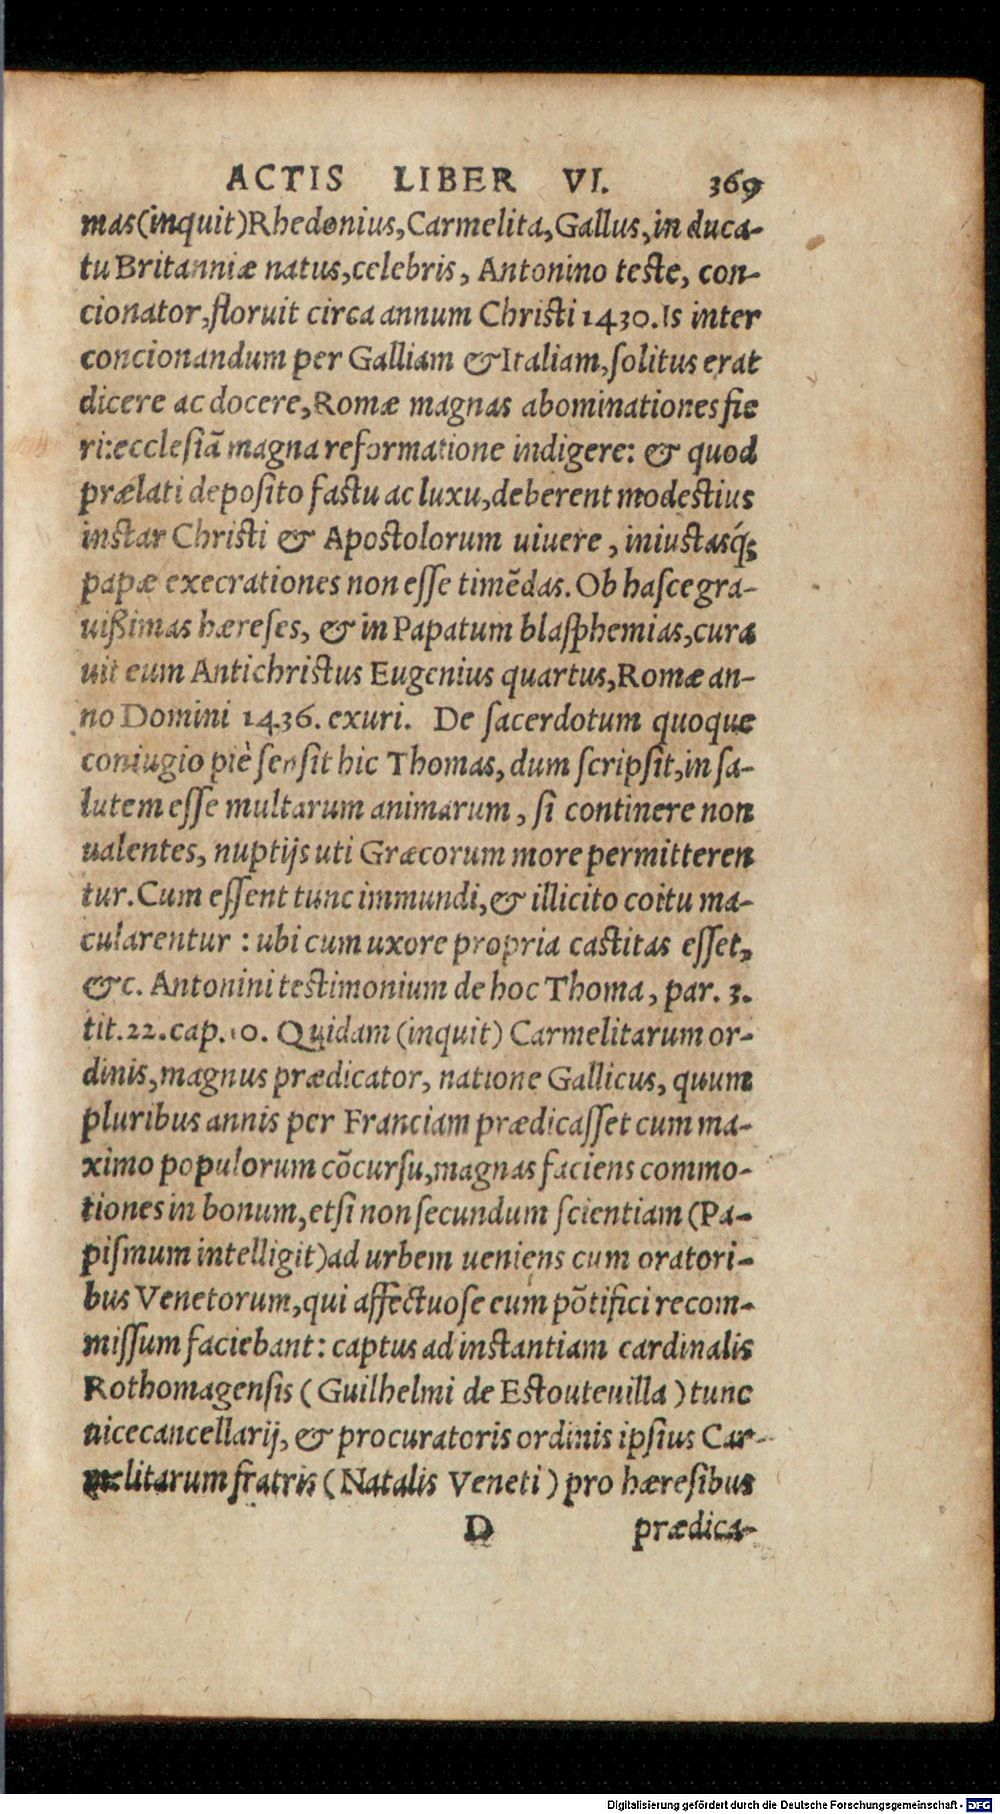 ACTIS LIBER VI. 369
mas(inquit)Rhedonius, Carmelita, Gallus, in duca-
tu Britanniæ natus, celebris, Antonino teste, con-
cionator, floruit circa annum Christi 1430. Is inter
concionandum per Galliam & Italiam, solitus erat
dicere ac docere, Romæ magnas abominationes fie
ri: ecclesiã magna reformatione indigere: & quod
prælati deposito fastu ac luxu, deberent modestius
instar Christi & Apostolorum uiuere, iniustasq́;
papæ execrationes non esse timẽdas. Ob hasce gra-
uißimas hæreses, & in Papatum blasphemias, cura
uit eum Antichristus Eugenius quartus, Romæ an-
no Domini 1436. exuri. De sacerdotum quoque
coniugio piè sensit hic Thomas, dum scripsit, in sa-
lutem esse multarum animarum, si continere non
ualentes, nuptijs uti Græcorum more permitteren
tur. Cum essent tunc immundi, & illicito coitu ma-
cularentur: ubi cum uxore propria castitas esset,
&c. Antonini testimonium de hoc Thoma, par. 3.
tit. 22. cap. 10. Quidam (inquit) Carmelitarum or-
dinis, magnus prædicator, natione Gallicus, quum
pluribus annis per Franciam prædicasset cum ma-
ximo populorum cõcursu, magnas faciens commo-
tiones in bonum, etsi non secundum scientiam (Pa-
pismum intelligit) ad urbem ueniens cum oratori-
bus Venetorum, qui affectuose eum põtifici recom-
missum faciebant: captus ad instantiam cardinalis
Rothomagensis (Guilhelmi de Estouteuilla) tunc
uicecancellarij, & procuratoris ordinis ipsius Car-
melitarum fratris (Natalis Veneti) pro hæresibus
D prædica-
Digitalisierung gefördert durch die Deutsche Forschungsgemeinschaft - DFG